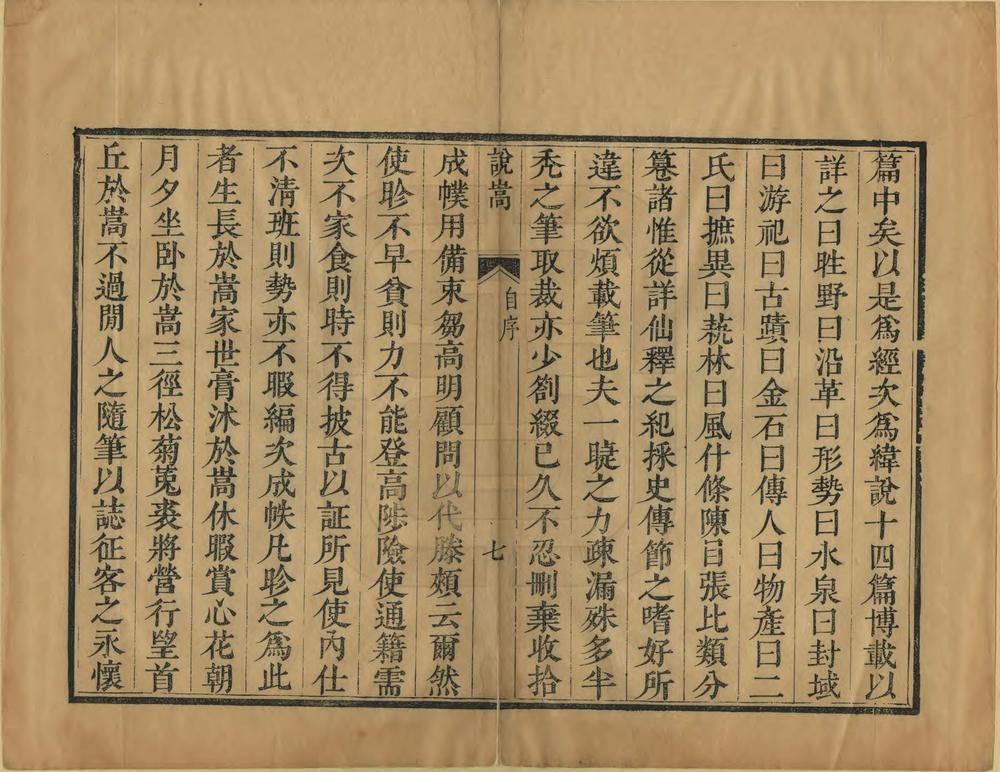 篇中矣以是爲經次爲緯說十四篇博載以
詳之曰星野曰沿革曰形勢曰水泉曰封域
曰游祀曰古蹟曰金石曰傳人曰物產曰二
氏曰摭異曰蓺林曰風什條陳目張比類分
篹諸惟從詳仙釋之紀採史傳節之嗜好所
違不欲煩載筆也夫一睫之力疎漏殊多半
禿之筆取裁亦少劄綴已久不忍刪棄收拾
說嵩
自序
七
成幞用備束芻高明顧問以代賸頰云爾然
使昣不早貧則力不能登高陟險使通籍需
次不家食則時不得披古以証所見使內仕
不清班則勢亦不暇編次成帙凡昣之爲此
者生長於嵩家世膏沐於嵩休暇賞心花朝
月夕坐卧於嵩三徑松菊菟裘將營行望首
丘於嵩不過閒人之隨筆以誌征客之永懷